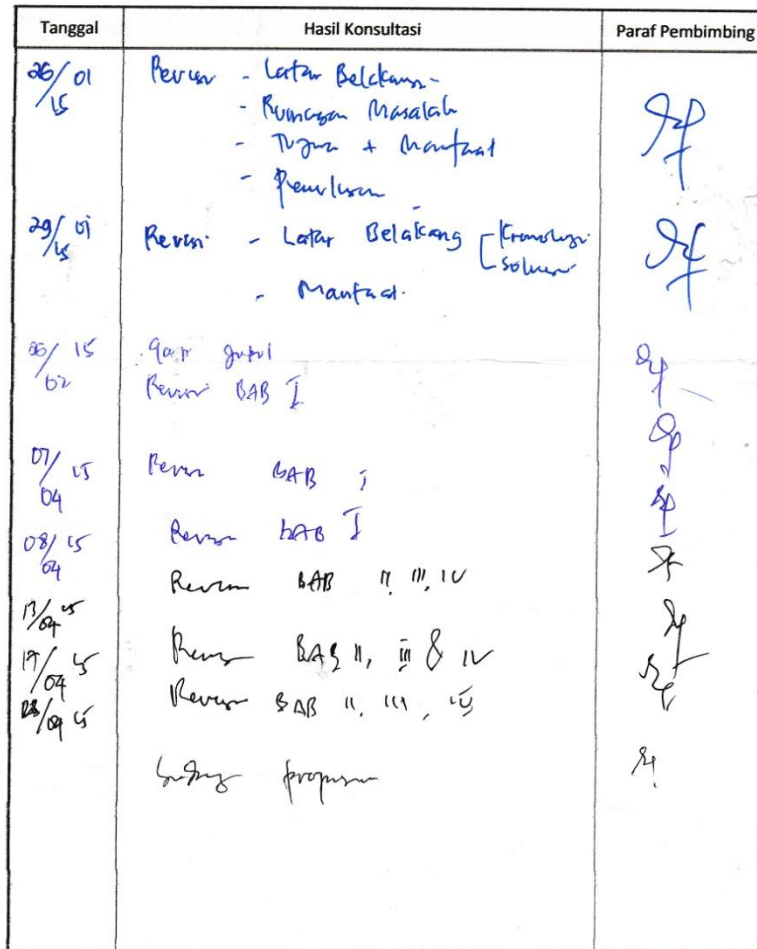 Tanggal Hasil Konsultasi Paraf Pembimbing
26/01 15 Revisi - Latar Belakang -
- Rumusan Masalah
- Tujuan + Manfaat
- Penulisan
29/01 15 Revisi - Latar Belakang [Kronologi
[Solusi
- Manfaat.
26/02 15 Judul
Revisi BAB I
07/04 15 Revisi BAB I
08/04 15 Revisi BAB I
Revisi BAB II, III, IV
13/04 15
Revisi BAB II, III & IV
17/04 15
Revisi BAB II, III, IV
/04 15